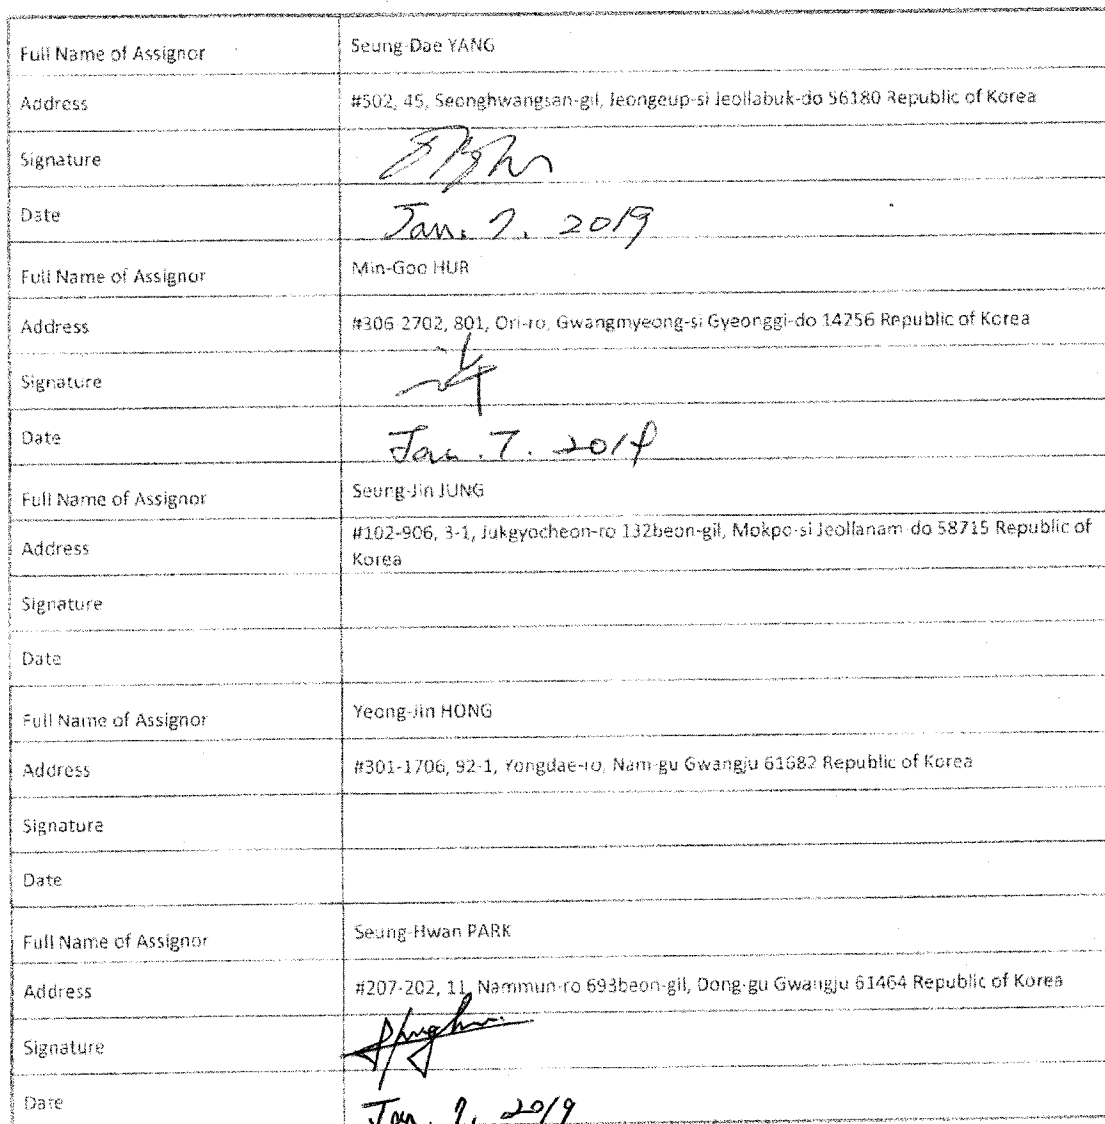 Full Name of Assignor Seung-Dae YANG
Address #502, 45, Seonghwangsan-gil, Jeongeup-si Jeollabuk-do 56180 Republic of Korea
Signature
Date Jan. 7. 2019
Full Name of Assignor Min-Goo HUR
Address #306-2702, 801, Ori-ro, Gwangmyeong-si Gyeonggi-do 14256 Republic of Korea
Signature
Date Jan. 7. 2019
Full Name of Assignor Seung-Jin JUNG
Address #102-906, 3-1, Jukgyocheon-ro 132beon-gil, Mokpo-si Jeollanam-do 58715 Republic of
Korea
Signature
Date
Full Name of Assignor Yeong-Jin HONG
Address #301-1706, 92-1, Yongdae-ro, Nam-gu Gwangju 61682 Republic of Korea
Signature
Date
Full Name of Assignor Seung-Hwan PARK
Address #207-202, 11, Nammun-ro 693beon-gil, Dong-gu Gwangju 61464 Republic of Korea
Signature
Date Jan. 7. 2019